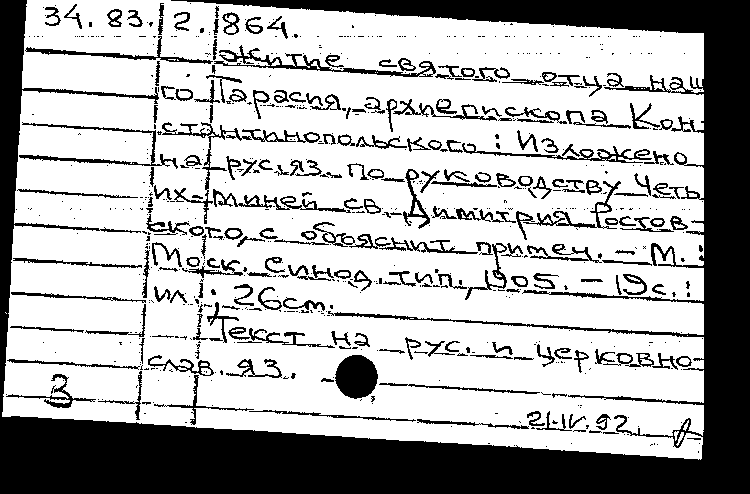 34.83. 2.864.
Житие святого отца наш
го Тарасия, архиепископа Кон-
стантинопольского : Изложено
на рус.яз. по руководству Четь
их-миней св. Димитрия Ростов-
ского, с объяснит. примеч. – М. :
Моск. Синод. тип., 1905. – 19с. :
ил. ; 26см.
Текст на рус. и церковно-
слав. яз. –
3
21.IV.92.